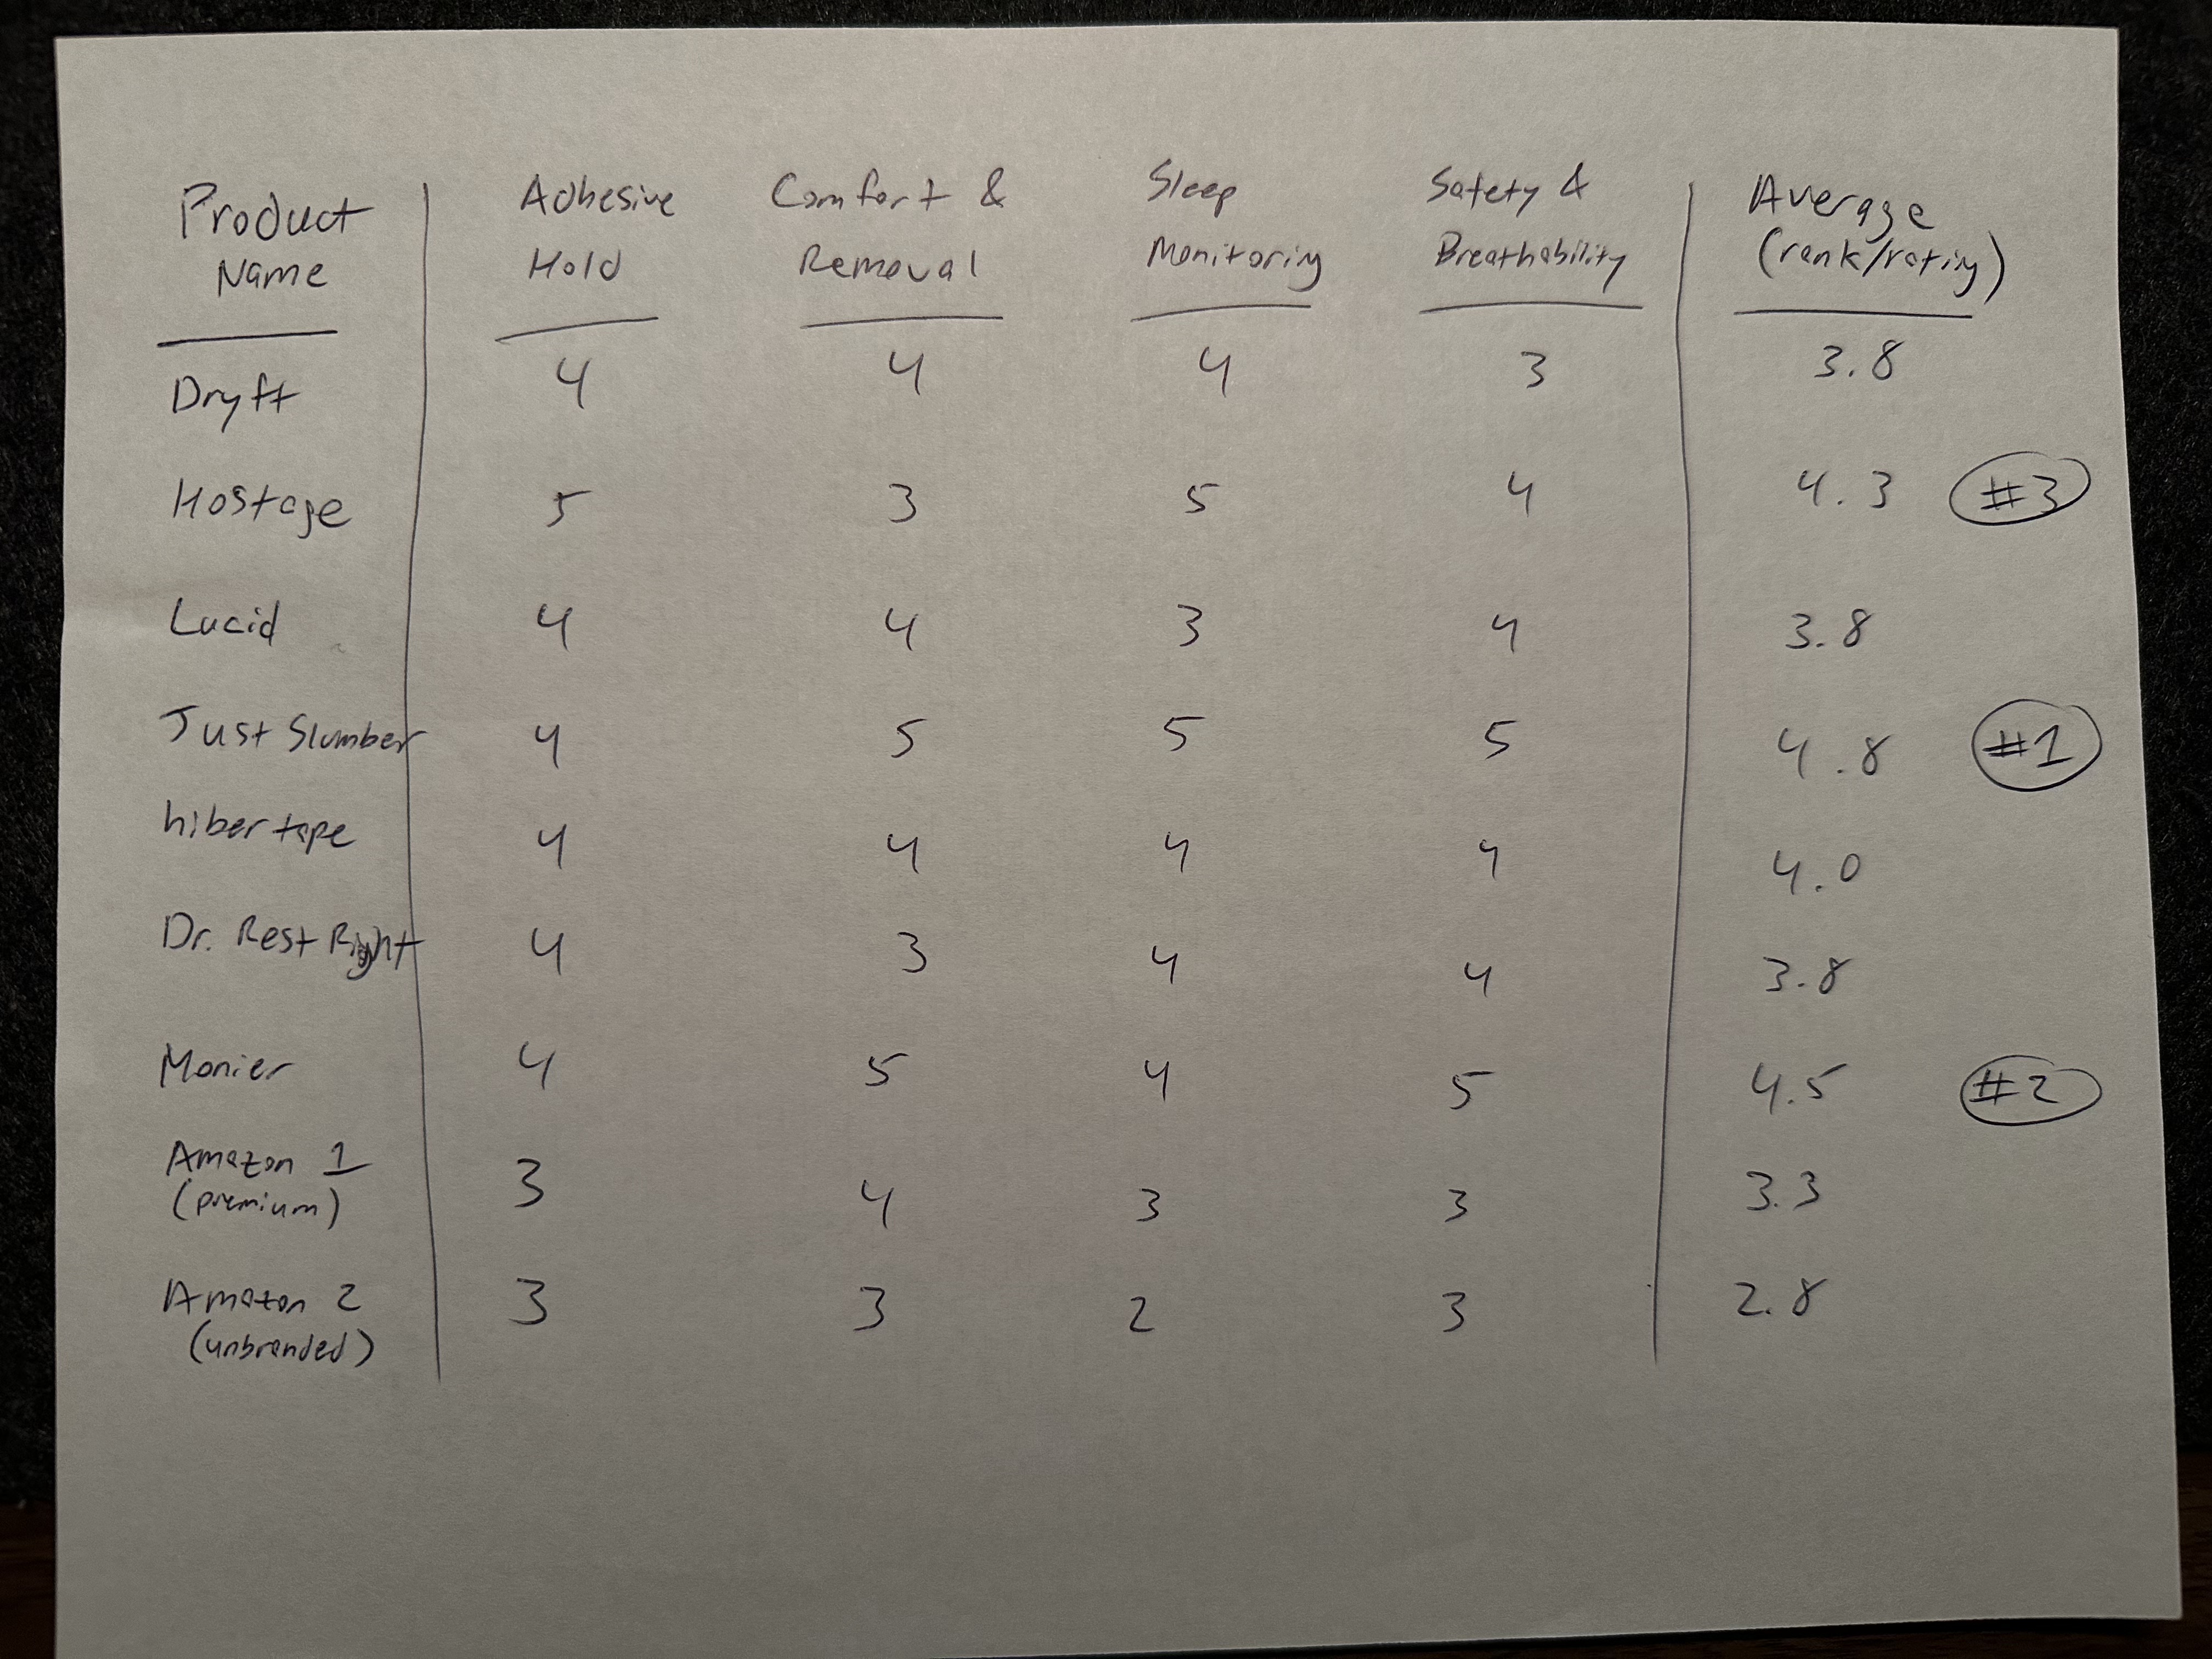 Product Name | Adhesive Hold | Comfort & Removal | Sleep Monitoring | Safety & Breathability | Average (rank/rating)
Dryft 4 4 4 3 3.8
Hostage 5 3 5 4 4.3 #3
Lucid 4 4 3 4 3.8
Just Slumber 4 5 5 5 4.8 #1
hibertape 4 4 4 4 4.0
Dr. Rest Right 4 3 4 4 3.8
Monier 4 5 4 5 4.5 #2
Amazon 1 (premium) 3 4 3 3 3.3
Amazon 2 (unbranded) 3 3 2 3 2.8